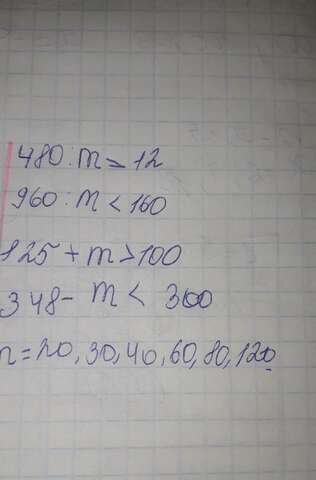 480:m=12
960:m<160
125+m>100
348-m<300
n=20,30,40,60,80,120